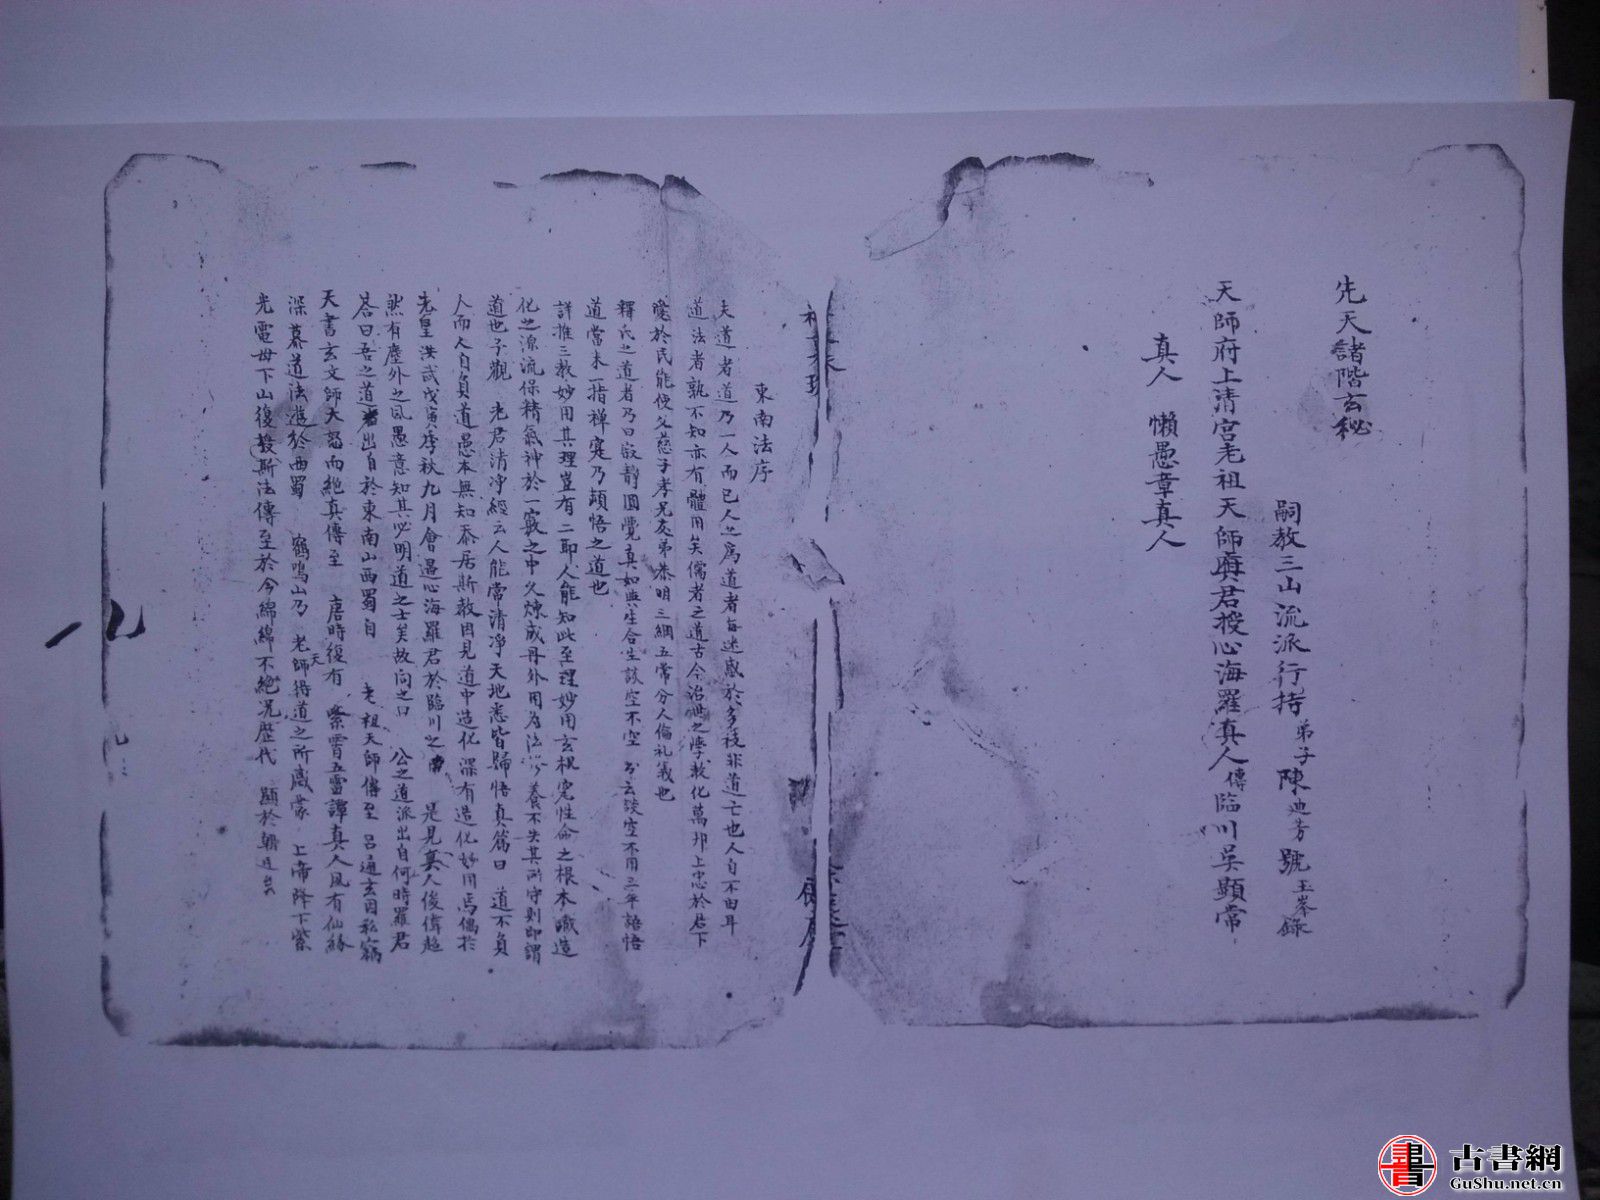 先天諸階玄秘
嗣教三山流派行持弟子陳迪芳號玉岑錄
天師府上清宮老祖天師真君授心海羅真人傳臨川吳顯常
真人 懶愚章真人
東南法序
夫道者道乃一人而已人之為道者每迷惑於多歧非道亡也人自不由耳
道法者孰不知亦有體用矣儒者之道古今治世之學教化萬邦上忠於君下
愛於民能使父慈子孝兄友弟恭明三綱五常分人倫礼義也
釋氏之道者乃曰寂靜圓覺真如與生合生談空不空 云談空不用三年語悟
道當末一指禅寔乃頓悟之道也
詳推三教妙用其理豈有二耶人能知此至理妙用玄根究性命之根本職造
化之源流保精氣神於一竅之中久煉成丹外用為法 養不失其所守則即謂
道也予觀 老君清净經云人能常清淨天地悉皆歸悟真篇曰 道不負
人而人自負道愚本無知忝居斯教因見道中造化深有造化妙用焉偶於
先皇洪武戊寅季秋九月會遇心海羅君於臨川之 是見真人俊偉超
然有塵外之風愚意知其必明道之士矣故向之曰 公之道派出自何時羅君
答曰吾之道出自於東南山西蜀自 老祖天師傳至 呂通玄因私竊
天書玄文師大怒而絕真傳至 唐時復有 紫霄五靈譚真人風有仙緣
深慕道法遊於西蜀 鶴鳴山乃 老天師得道之所感蒙 上帝降下紫
光電母下山復授斯法傳至於今綿綿不絕况歷代 顯於朝廷
九
古書網
GuShu.net.cn